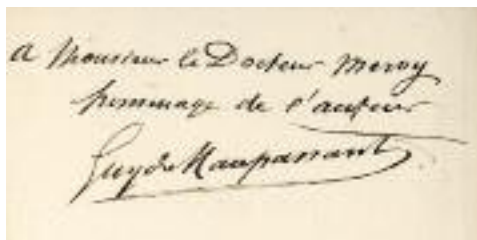 A Monsieur le Docteur Meroy
hommage de l'auteur
Guy de Maupassant